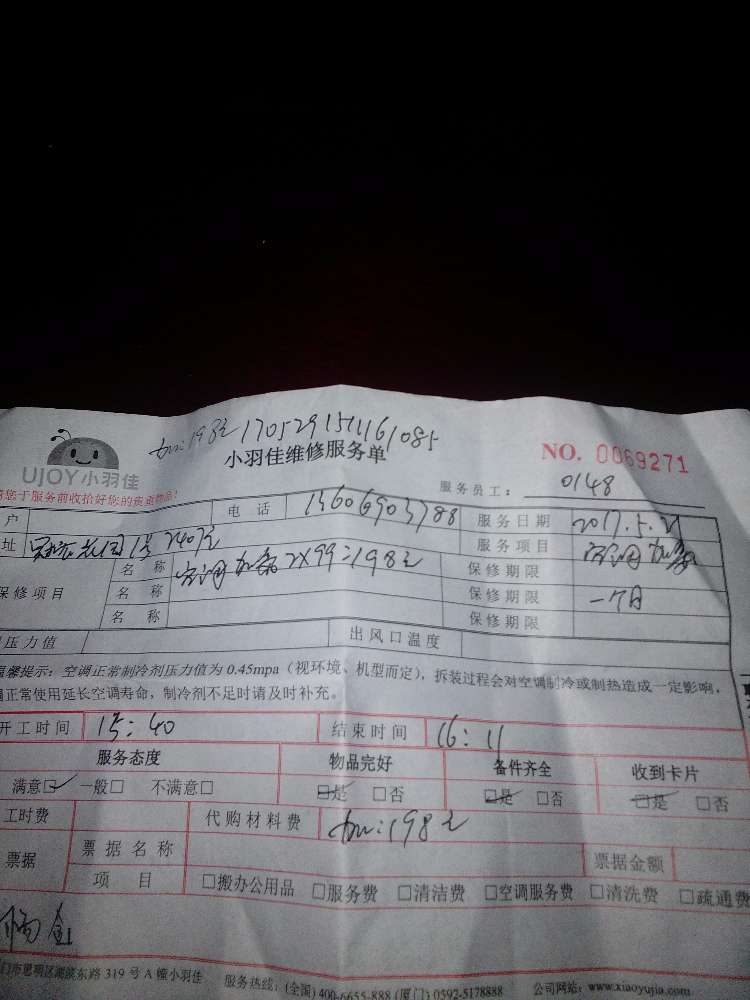 170529151161085
UJOY小羽佳
小羽佳维修服务单
NO. 0069271
您于服务前收拾好您的贵重物品!
服务员工: 0148
户
电话
服务日期 2017.5.
址
花园1号240
服务项目 空调加氨
保修项目
名称 空调加氨2X99=198元
保修期限
名称
保修期限 一个月
名称
保修期限
压力值
出风口温度
温馨提示:空调正常制冷剂压力值为 0.45mpa(视环境、机型而定),拆装过程会对空调制冷或制热造成一定影响,
正常使用延长空调寿命,制冷剂不足时请及时补充。
开工时间 15:40
结束时间 16:11
服务态度
物品完好
备件齐全
收到卡片
满意☑ 一般□ 不满意□
☑是 □否
☑是 □否
☑是 □否
工时费
代购材料费 198元
票据
票据名称
票据金额
项目
□搬办公用品 □服务费 □清洁费 □空调服务费 □清洗费 □疏通费
门市思明区湖滨东路 319 号 A 幢小羽佳
服务热线:(全国)400-6655-888 (厦门)0592-5178888
公司网站:www.xiaoyujia.com